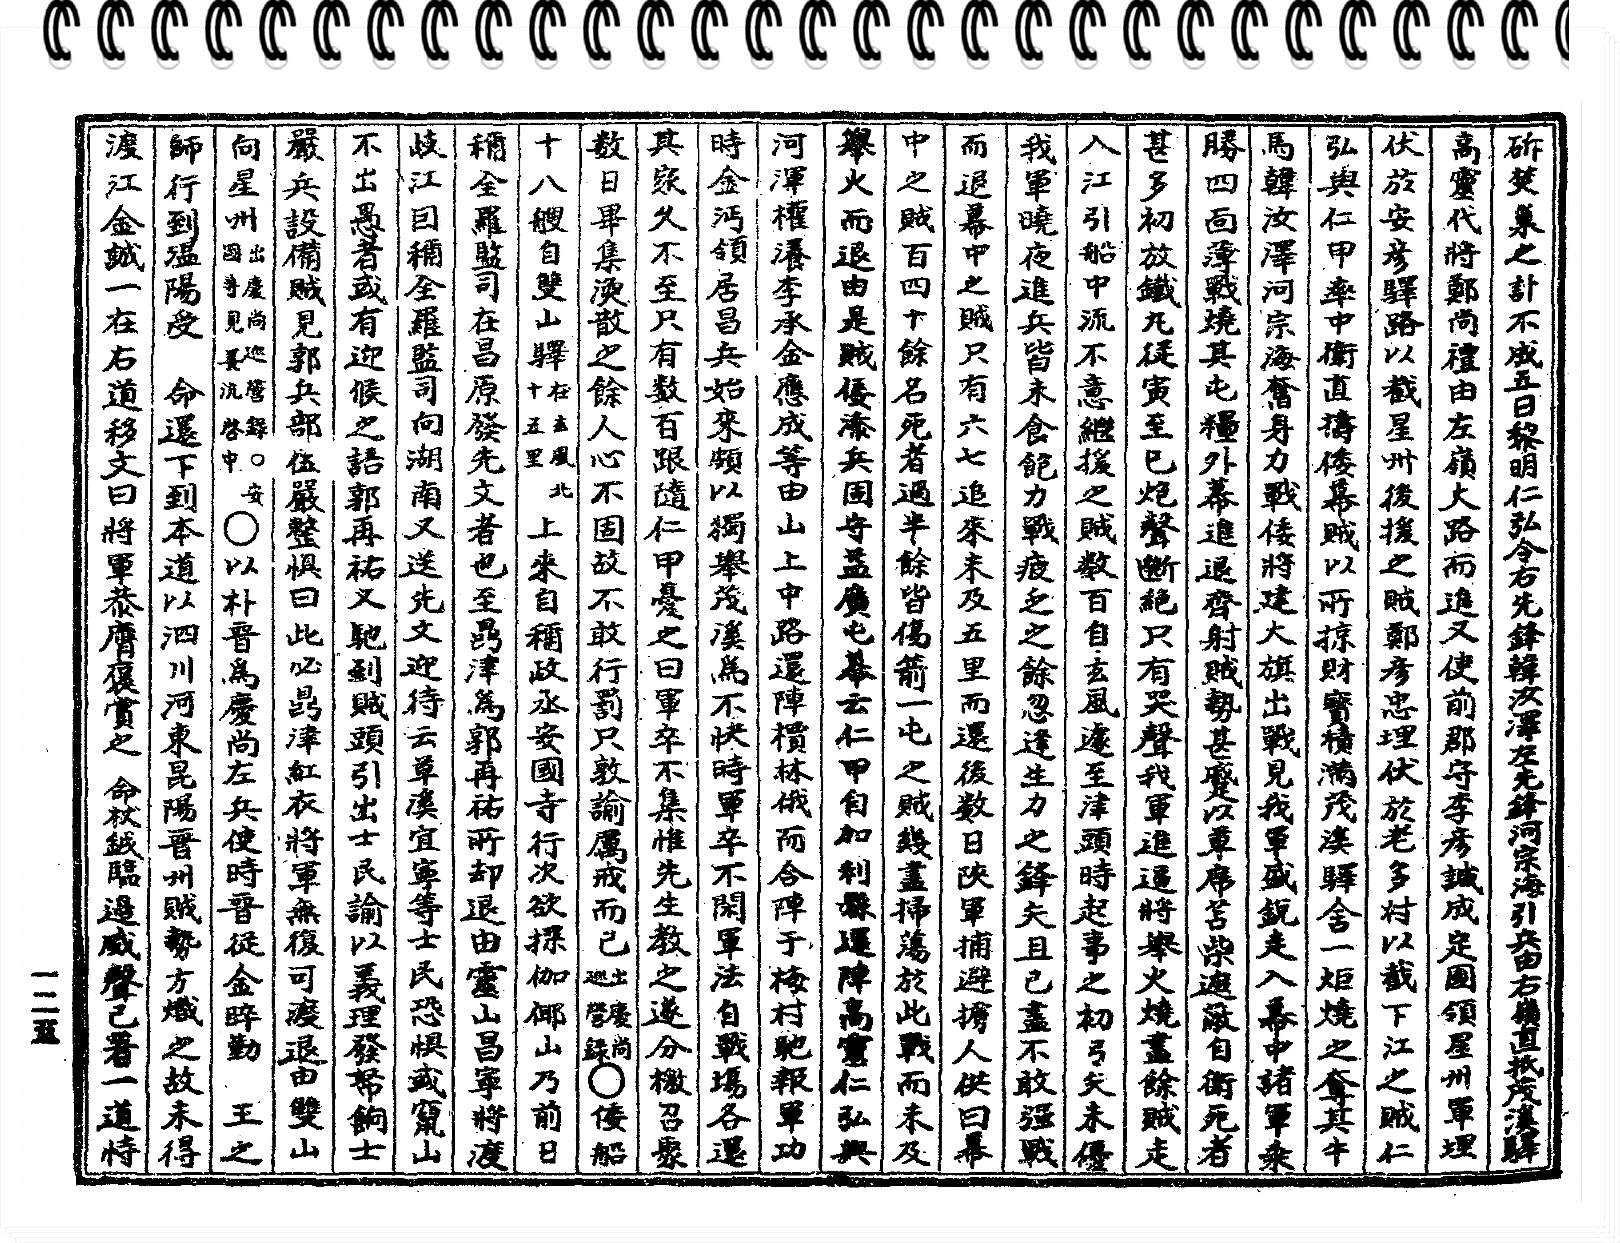 斫焚巢之計不成五日黎明仁弘令右先鋒韓汝澤左先鋒河宗海引兵由右嶺直抵茂溪驛
高靈代將鄭尙禮由左嶺大路而進又使前郡守李彦誠成定國領星州軍埋
伏於安彦驛路以截星州後援之賊鄭彦忠埋伏於老多村以截下江之賊仁
弘與仁甲率中衛直擣倭幕賊以所掠財寶積滿茂溪驛舍一炬燒之奪其牛
馬韓汝澤河宗海奮身力戰倭將建大旗出戰見我軍盛銳走入幕中諸軍乘
勝四面薄戰燒其屯糧外幕進退齊射賊勢甚蹙以草席苫柴遮蔽自衛死者
甚多初放鐵丸從寅至巳炮聲斷絕只有哭聲我軍進逼將擧火燒盡餘賊走
入江引船中流不意繼援之賊数百自玄風遽至津頭時起事之初弓矢未優
我軍曉夜進兵皆未食飽力戰疲乏之餘忽逢生力之鋒矢且已盡不敢强戰
而退幕中之賊只有六七追來未及五里而還後数日陜軍捕避擄人供曰幕
中之賊百四十餘名死者過半餘皆傷箭一屯之賊幾盡掃蕩於此戰而未及
擧火而退由是賊倭添兵固守益廣屯幕云仁甲自加利縣還陣高靈仁弘與
河渾權瀁李承金應成等由山上中路還陣櫃林俄而合陣于梅村馳報軍功
時金沔領居昌兵始來頗以獨擧茂溪爲不快時軍卒不閑軍法自戰塲各還
其家久不至只有数百跟隨仁甲憂之曰軍卒不集惟先生敎之遂分檄召聚
数日畢集渙散之餘人心不固故不敢行罰只敦諭厲戒而已出慶尙巡營錄〇倭船
十八艘自雙山驛在玄風北十五里上來自稱政丞安國寺行次欲探伽倻山乃前日
稱全羅監司在昌原發先文者也至昺津爲郭再祐所却退由靈山昌寧將渡
岐江曰稱全羅監司向湖南又送先文迎待云草溪宜寧等士民恐惧或竄山
不出愚者或有迎候之語郭再祐又馳到賊頭引出士民諭以義理發帑餉士
嚴兵設備賊見郭兵部伍嚴整惧曰此必昺津紅衣將軍無復可渡退由雙山
向星州出慶尙巡營錄〇安國寺見黃沆啓中〇以朴晋爲慶尙左兵使時晋從金晬勤 王之
師行到溫陽受 命還下到本道以泗川河東昆陽晋州賊勢方熾之故未得
渡江金誠一在右道移文曰將軍恭膺褒賞之 命杖鉞臨邊威聲已著一道恃
一二五